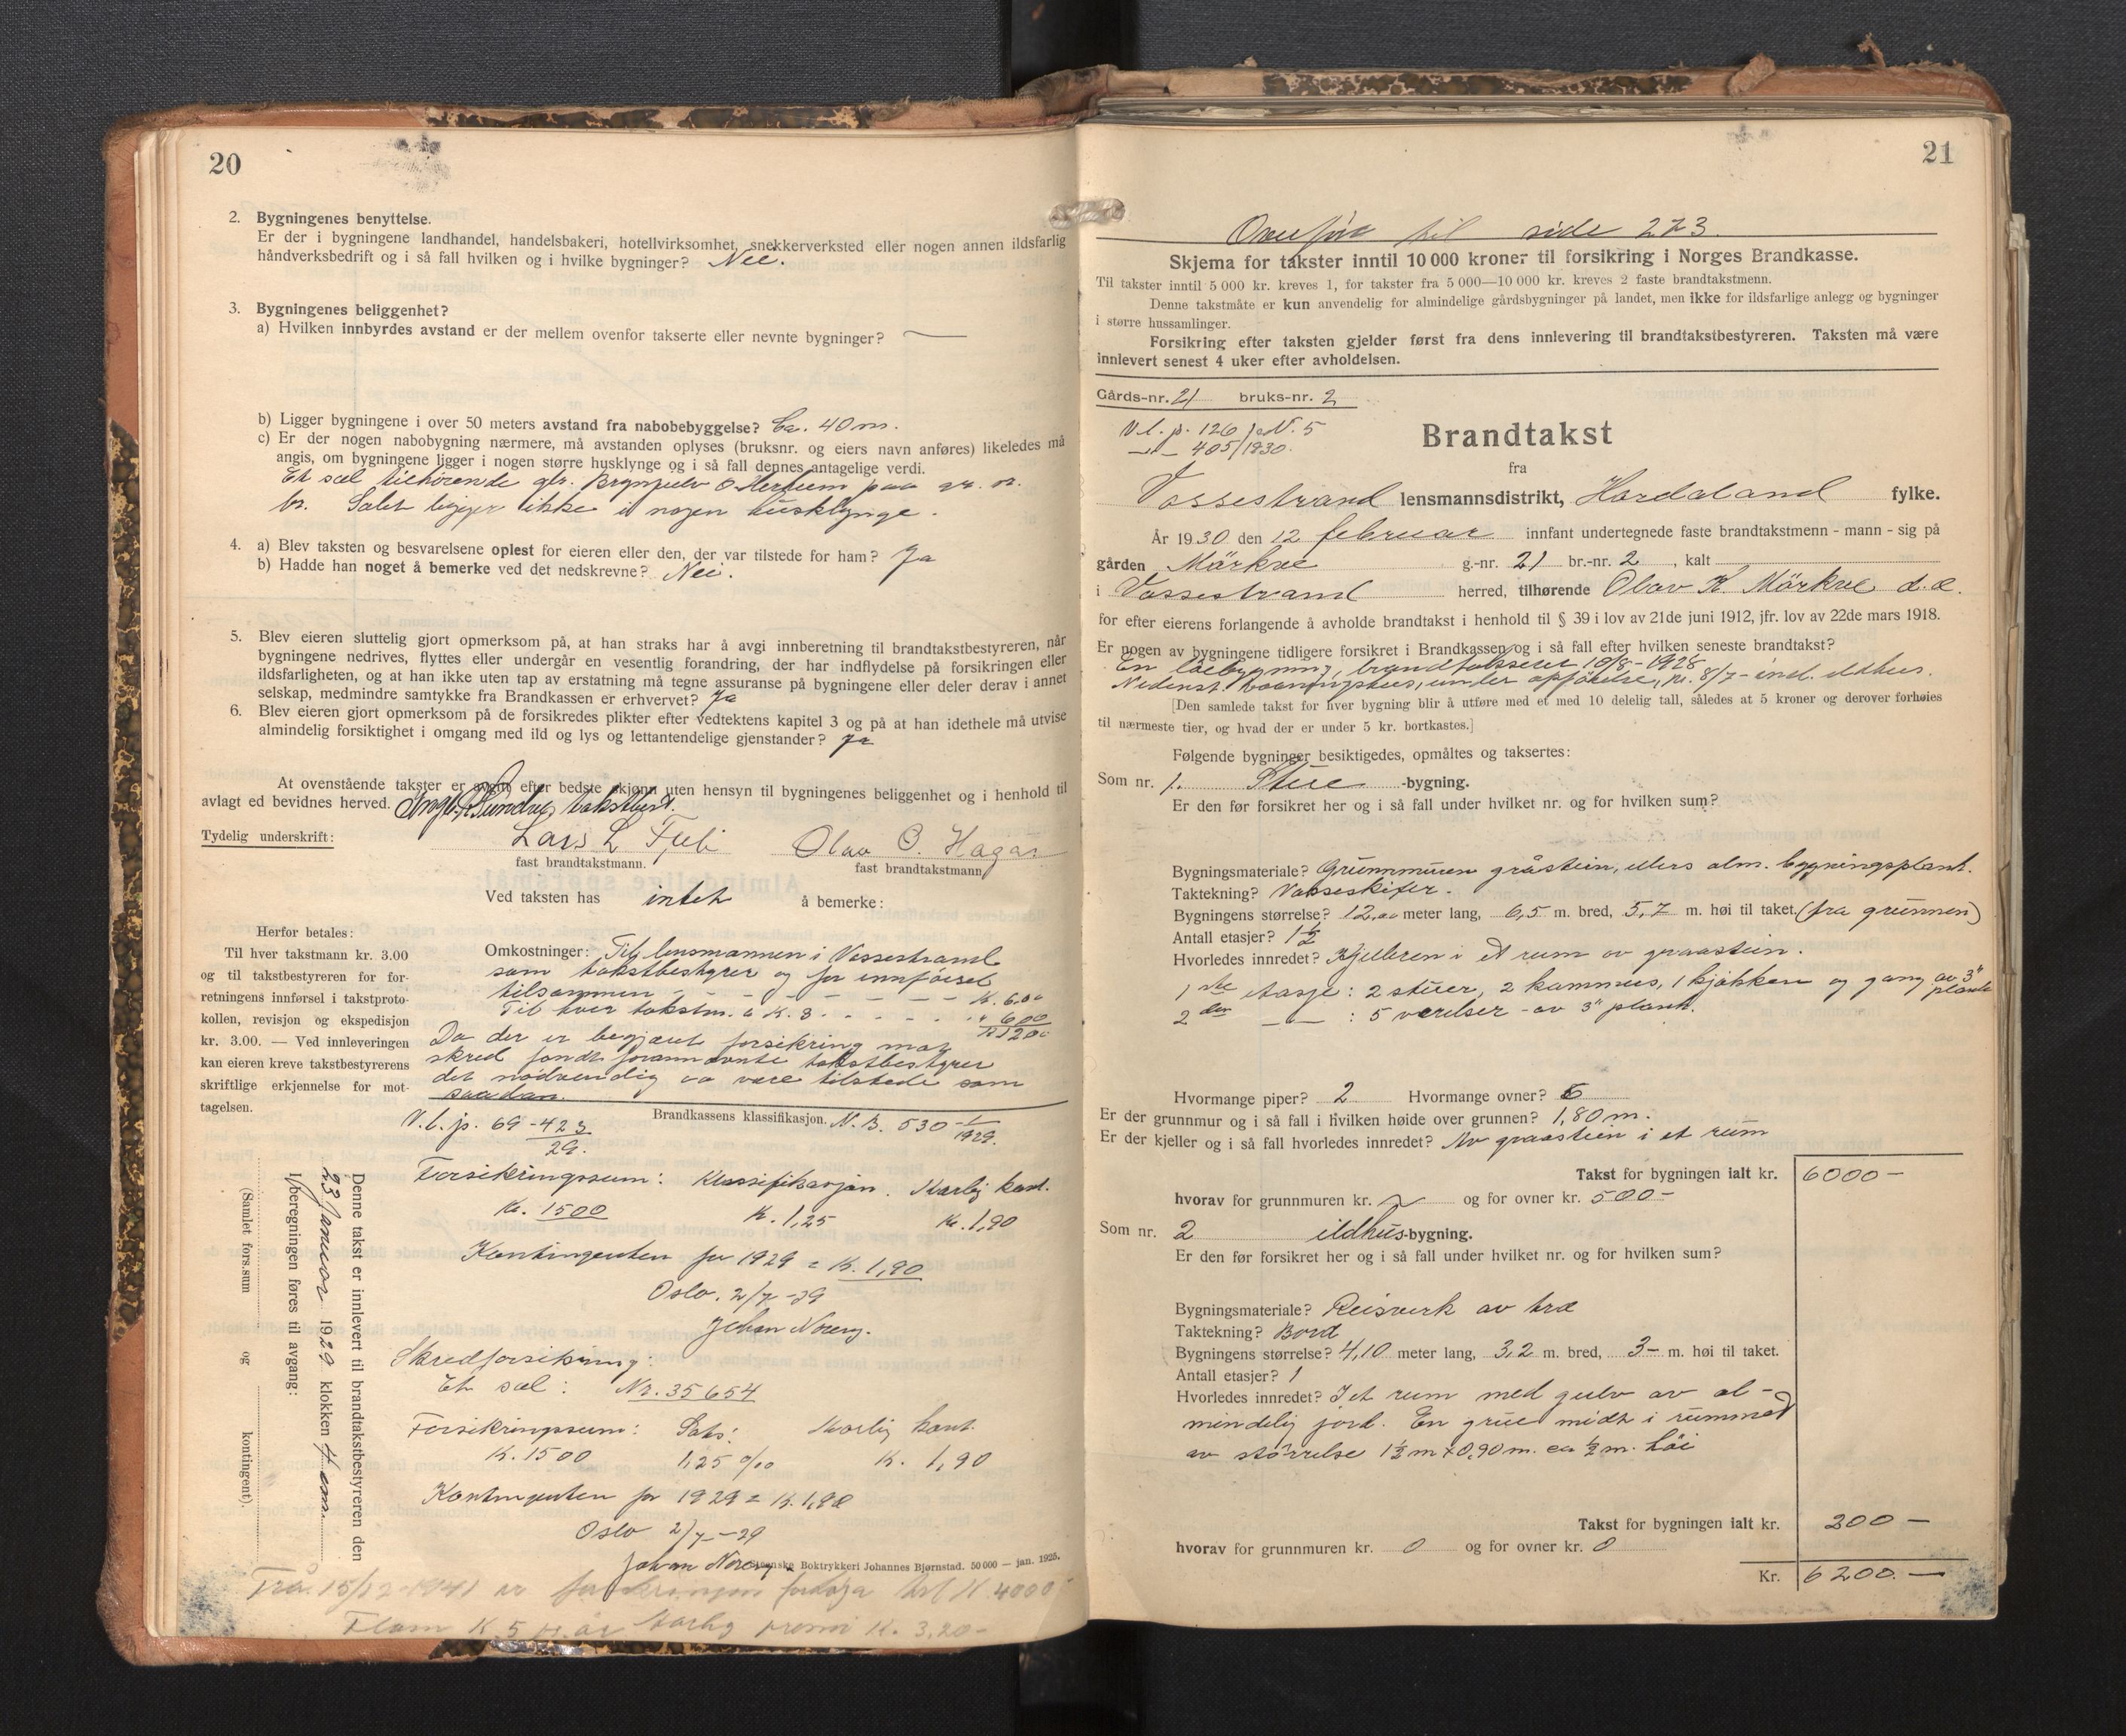 20
2. Bygningenes benyttelse.
Er der i bygningene landhandel, handelsbakeri, hotellvirksomhet, snekkerverksted eller nogen annen ildsfarlig
håndverksbedrift og i så fall hvilken og i hvilke bygninger? Nei.
3. Bygningenes beliggenhet?
a) Hvilken innbyrdes avstand er der mellem ovenfor takserte eller nevnte bygninger? —
b) Ligger bygningene i over 50 meters avstand fra nabobebyggelse? Ca. 40 m.
c) Er der nogen nabobygning nærmere, må avstanden oplyses (bruksnr. og eiers navn anføres) likeledes må
angis, om bygningene ligger i nogen større husklynge og i så fall dennes antagelige verdi.
Et sæl tilhørende Brynjulv O paa gr. nr.
br. Sælet ligger ikke i nogen husklynge.
4. a) Blev taksten og besvarelsene oplest for eieren eller den, der var tilstede for ham? Ja
b) Hadde han noget å bemerke ved det nedskrevne? Nei.
5. Blev eieren sluttelig gjort opmerksom på, at han straks har å avgi innberetning til brandtakstbestyreren, når
bygningene nedrives, flyttes eller undergår en vesentlig forandring, der har indflydelse på forsikringen eller
ildsfarligheten, og at han ikke uten tap av erstatning må tegne assuranse på bygningene eller deler derav i annet
selskap, medmindre samtykke fra Brandkassen er erhvervet? Ja
6. Blev eieren gjort opmerksom på de forsikredes plikter efter vedtektens kapitel 3 og på at han idethele må utvise
almindelig forsiktighet i omgang med ild og lys og lettantendelige gjenstander? Ja
At ovenstående takster er avgitt efter bedste skjønn uten hensyn til bygningenes beliggenhet og i henhold til
avlagt ed bevidnes herved. takstbest.
Tydelig underskrift: Lars L Olav O. Hagar
fast brandtakstmann. fast brandtakstmann
Ved taksten has intet å bemerke:
Herfor betales:
Til hver takstmann kr. 3.00
og til takstbestyreren for for-
retningens innførsel i takstproto-
kollen, revisjon og ekspedisjon
kr. 3.00. — Ved innleveringen
kan eieren kreve takstbestyrerens
skriftlige erkjennelse for mot-
tagelsen.
Omkostninger: Til lensmannen i Vossestrand
som takstbestyrer og for innførsel
tilsammen - - - - - K. 6.00
Til hver takstm. à K. 3. - - - - " 6.00
K 12.00
Da der er begjært forsikring mot
skred fandt forannævnte takstbestyrer
det nødvendig aa være tilstede som
saadan.
Brandkassens klassifikasjon. N. B. 530 - 1/1929.
V.b.p. 69 - 423/29.
Forsikringssum: Klassifikasjon. Aarlig kont.
Kr. 1500 K. 1,25 Kr. 1,90
Kontingenten for 1929 = K. 1,90
Oslo. 2/7 - 29
Johan Noreng.
Skredforsikring:
Et sæl: Nr. 35654
Forsikringssum: Sats: Aarlig kont.
K. 1500 1,25 o/oo K. 1,90
Kontingenten for 1929 = K. 1,90
Oslo 2/7 - 29
Johan Noreng
Grenske Boktrykkeri Johannes Bjørnstad. 50 000 — jan. 1925.
Frå 15/12-1941 er forsikringen til K. 4000
K. 5 Aarleg premi K. 3,20-
Denne takst er innlevert til brandtakstbestyreren den
23 januar 1929 klokken 4 em.
I beregningen føres til avgang:
(Samlet fors.sum og kontingent).
21
Overført til side 273.
Skjema for takster inntil 10 000 kroner til forsikring i Norges Brandkasse.
Til takster inntil 5 000 kr. kreves 1, for takster fra 5 000—10 000 kr. kreves 2 faste brandtakstmenn.
Denne takstmåte er kun anvendelig for almindelige gårdsbygninger på landet, men ikke for ildsfarlige anlegg og bygninger
i større hussamlinger.
Forsikring efter taksten gjelder først fra dens innlevering til brandtakstbestyreren. Taksten må være
innlevert senest 4 uker efter avholdelsen.
Gårds-nr. 21 bruks-nr. 2
V.b.p. 126 J.N. 5
—"— 405/1930.
Brandtakst
fra
Vossestrand lensmannsdistrikt, Hordaland fylke.
År 1930 den 12 februar innfant undertegnede faste brandtakstmenn - mann - sig på
gården Mörkve g.-nr. 21 br.-nr. 2, kalt
i Vossestrand herred, tilhørende Olav K. Mörkve d.e.
for efter eierens forlangende å avholde brandtakst i henhold til § 39 i lov av 21de juni 1912, jfr. lov av 22de mars 1918.
Er nogen av bygningene tidligere forsikret i Brandkassen og i så fall efter hvilken seneste brandtakst?
En löebygning, brandtakseret 10/8-1928
Nedenst. vaaningshus, under opförelse, nr. 8/7 - incl. ildhus.
[Den samlede takst for hver bygning blir å utføre med et med 10 delelig tall, således at 5 kroner og derover forhøies
til nærmeste tier, og hvad der er under 5 kr. bortkastes.]
Følgende bygninger besiktigedes, opmåltes og taksertes:
Som nr. 1. Stue -bygning.
Er den før forsikret her og i så fall under hvilket nr. og for hvilken sum?
Bygningsmateriale? Grunnmuren gråstein, ellers alm. bygningsplank.
Taktekning? Vosseskifer.
Bygningens størrelse? 12,00 meter lang, 6,5 m. bred, 5,7 m. høi til taket. (fra grunnen)
Antall etasjer? 1 1/2
Hvorledes innredet? Kjelleren i et rum av graastein.
1ste etasje: 2 stuer, 2 kammers, 1 kjøkken og gang av 3" plank
2den —"— : 5 værelser - av 3" plank.
Hvormange piper? 2 Hvormange ovner? 5
Er der grunnmur og i så fall i hvilken høide over grunnen? 1,80 m.
Er der kjeller og i så fall hvorledes innredet? Av graastein i et rum
Takst for bygningen ialt kr. 6000 —
hvorav for grunnmuren kr. og for ovner kr. 500 -
Som nr. 2 ildhus-bygning.
Er den før forsikret her og i så fall under hvilket nr. og for hvilken sum?
Bygningsmateriale? Reisverk av træ
Taktekning? Bord
Bygningens størrelse? 4,10 meter lang, 3,2 m. bred, 3 - m. høi til taket.
Antall etasjer? 1
Hvorledes innredet? I et rum med gulv av al-
mindelig jord. En grue midt i rummet
av størrelse 1 1/2 m x 0,90 m. ca 1/2 m. höi
Takst for bygningen ialt kr. 200 —
hvorav for grunnmuren kr. 0 og for ovner kr. 0
Kr. 6200. —